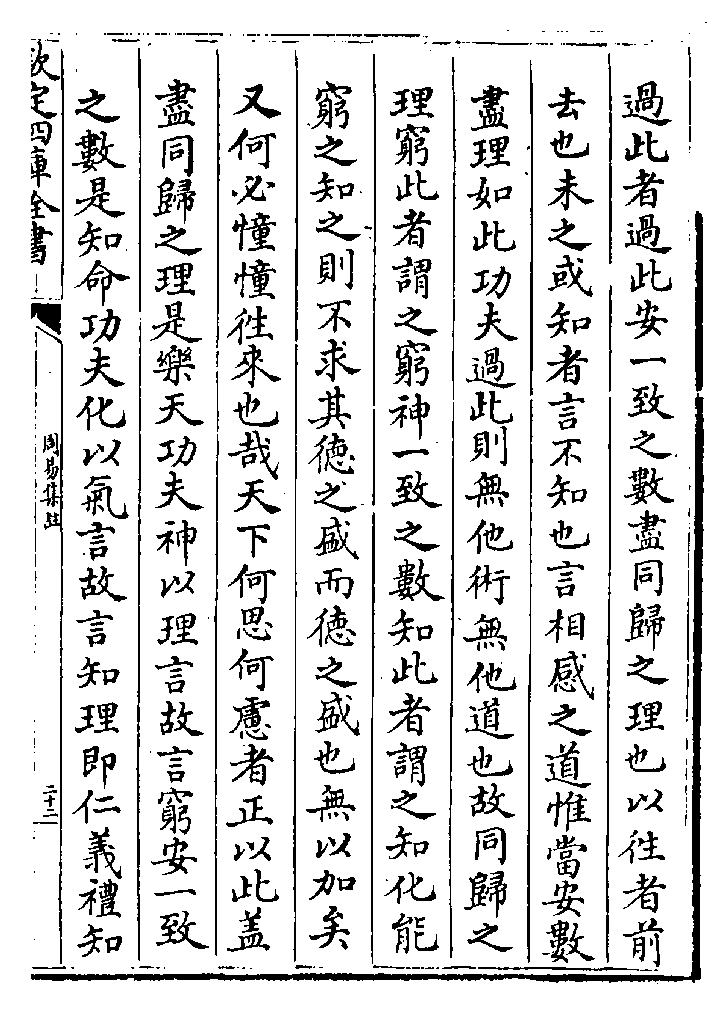 過此者過此安一致之數盡同歸之理也以徃者前
去也未之或知者言不知也言相感之道惟當安數
盡理如此功夫過此則無他術無他道也故同歸之
理窮此者謂之窮神一致之數知此者謂之知化能
窮之知之則不求其德之盛而德之盛也無以加矣
又何必憧憧徃來也哉天下何思何慮者正以此蓋
盡同歸之理是樂天功夫神以理言故言窮安一致
之數是知命功夫化以氣言故言知理即仁義禮知
欽定四庫全書
周易集註
二十二